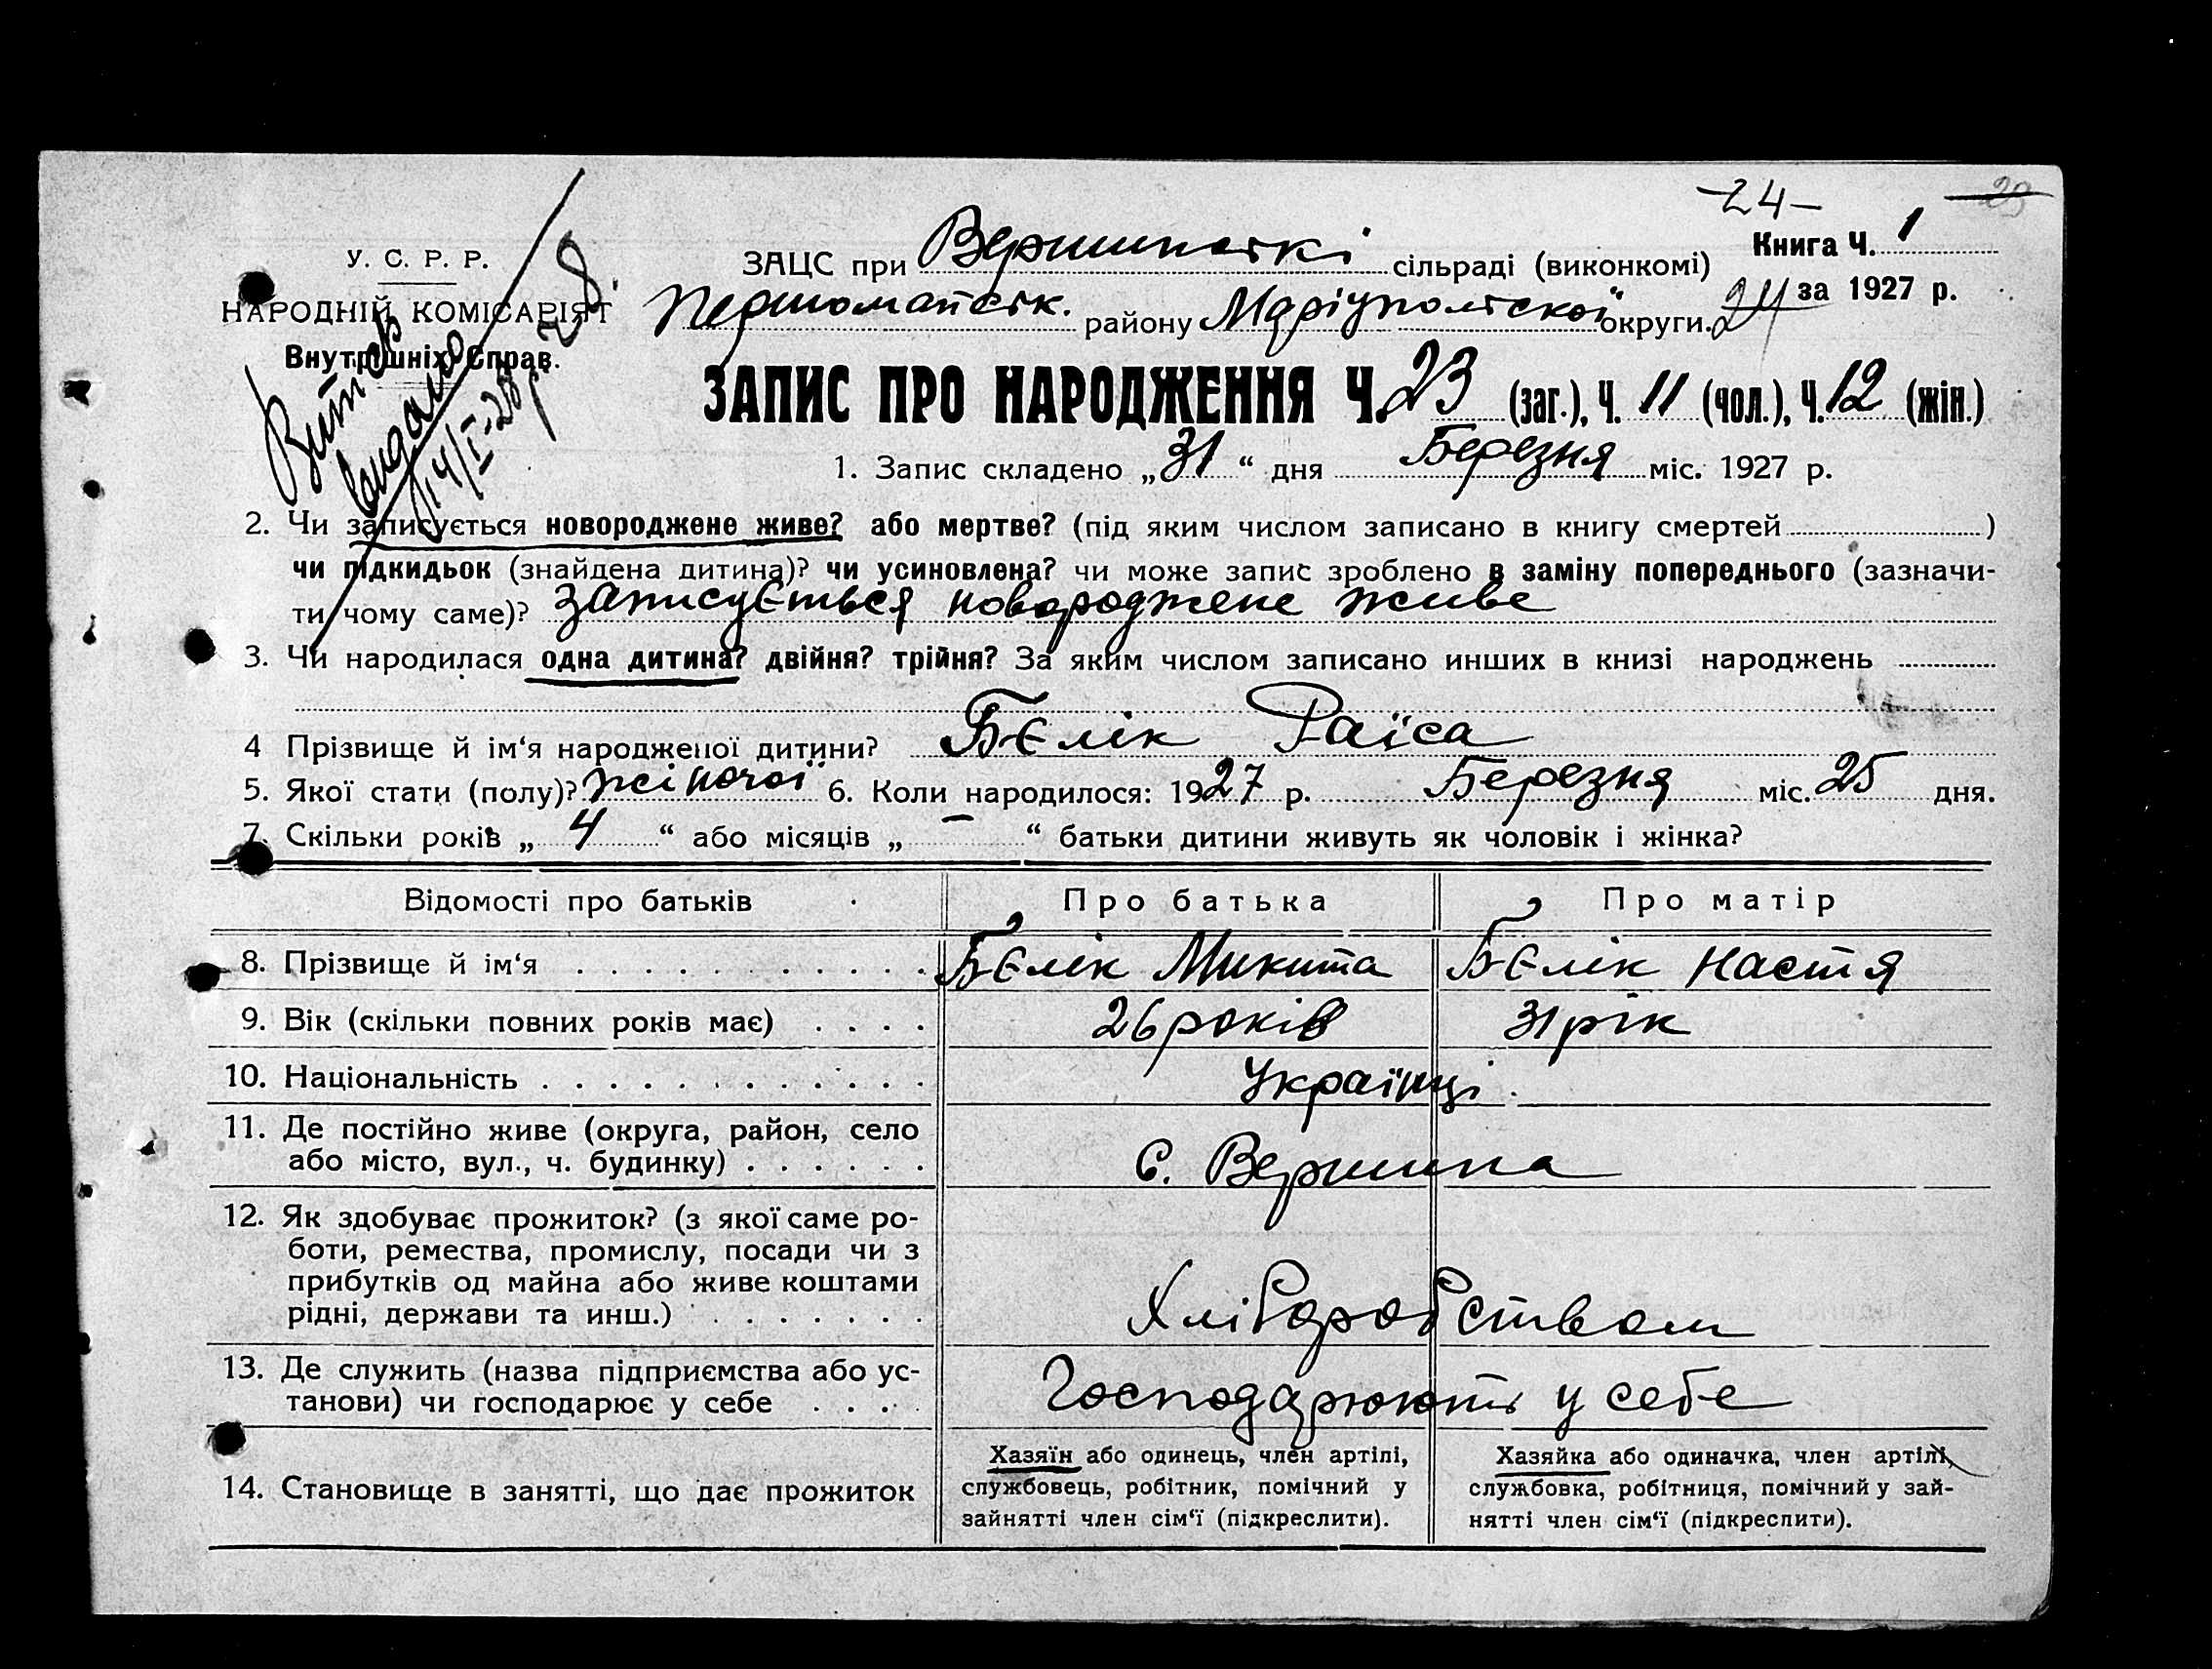 -24-
29
У. С. Р. Р.
НАРОДНІЙ КОМІСАРІЯТ
Внутрішніх Справ.
Витяг
видано
14/I-28р
28
ЗАЦС при Вершинській сільраді (виконкомі)
Книга Ч. 1
Першомайськ. району Маріупольської округи. 24 за 1927 р.
ЗАПИС ПРО НАРОДЖЕННЯ Ч. 23 (заг.), Ч. 11 (чол.), Ч. 12 (жін.)
1. Запис складено „31“ дня Березня міс. 1927 р.
2. Чи записується новороджене живе? або мертве? (під яким числом записано в книгу смертей )
чи підкидьок (знайдена дитина)? чи усиновлена? чи може запис зроблено в заміну попереднього (зазначи-
ти чому саме)? записується новороджене живе
3. Чи народилася одна дитина? двійня? трійня? За яким числом записано инших в книзі народжень
4 Прізвище й ім‘я народженої дитини? Бєлік Раїса
5. Якої стати (полу)? жіночої 6. Коли народилося: 1927 р. Березня міс. 25 дня.
7. Скільки років „ 4 “ або місяців „ — “ батьки дитини живуть як чоловік і жінка?
Відомості про батьків Про батька Про матір
8. Прізвище й ім‘я Бєлік Микита Бєлік Настя
9. Вік (скільки повних років має) 26 років 31 рік
10. Національність Українці.
11. Де постійно живе (округа, район, село
або місто, вул., ч. будинку) с. Вершина
12. Як здобуває прожиток? (з якої саме ро-
боти, ремества, промислу, посади чи з
прибутків од майна або живе коштами
рідні, держави та инш.) Хліборобством
13. Де служить (назва підприємства або ус-
танови) чи господарює у себе Господарюють у себе
14. Становище в занятті, що дає прожиток
Хазяїн або одинець, член артілі,
службовець, робітник, помічний у
зайнятті член сім‘ї (підкреслити).
Хазяйка або одиначка, член артілі,
службовка, робітниця, помічний у зай-
нятті член сім‘ї (підкреслити).